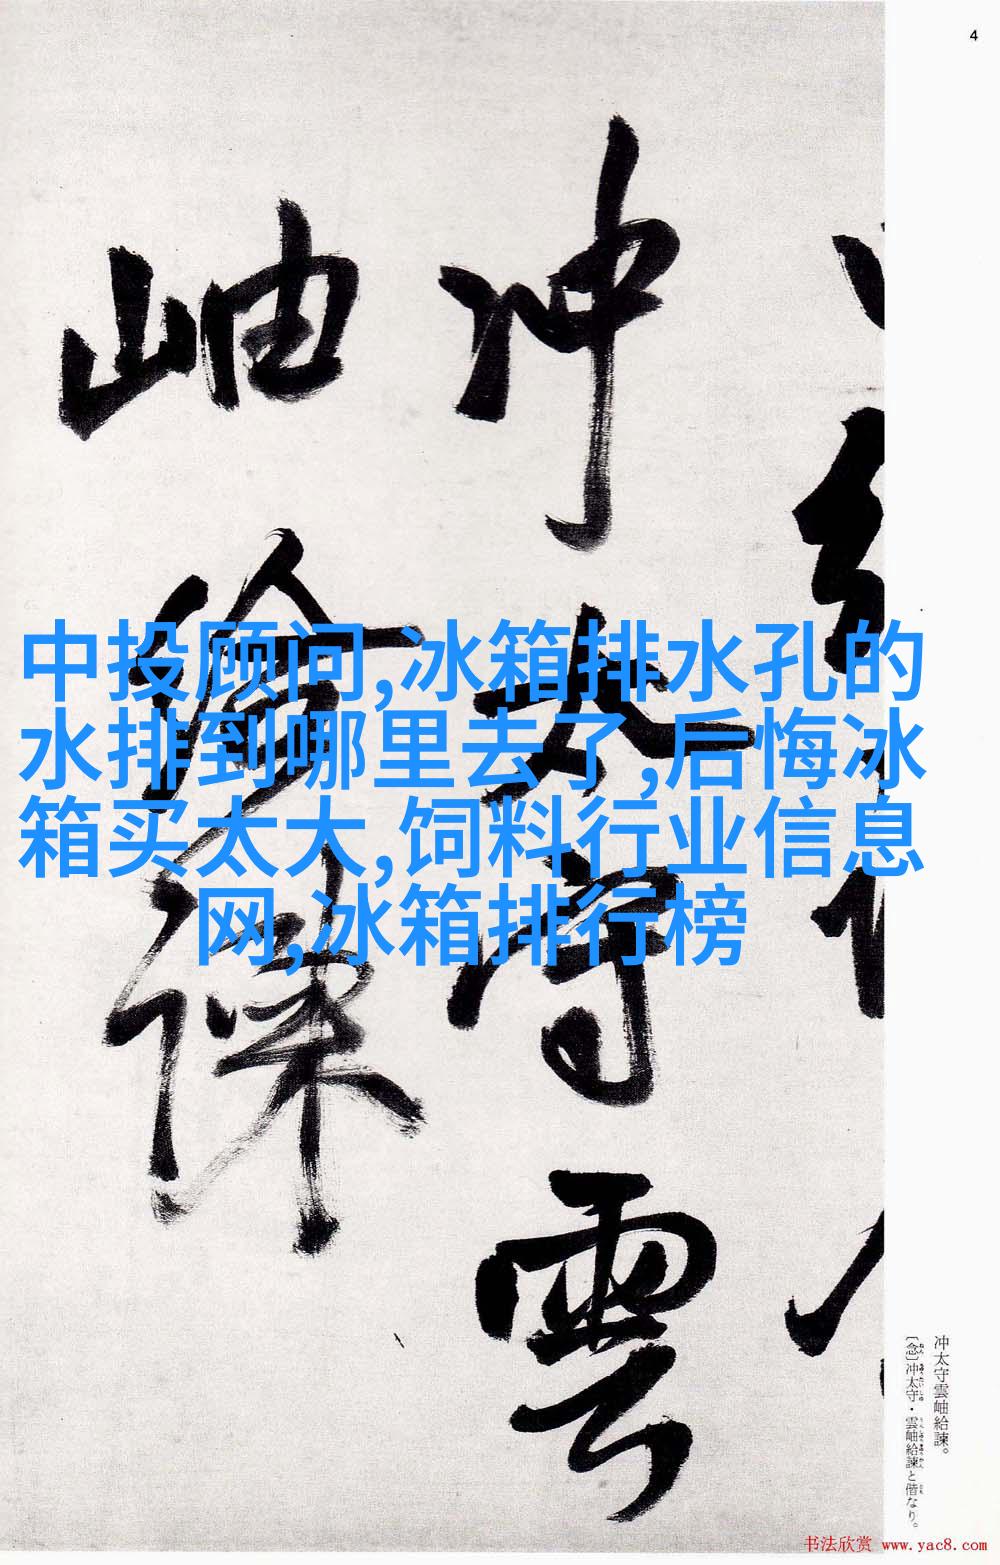 4
冲太守雲
岫給諫
中投顾问,冰箱排水孔的
水排到哪里去了,后悔冰
箱买太大,饲料行业信息
网,冰箱排行榜
冲太守雲岫給諫。
〔念〕冲太守・雲岫給諫と偕なり。
书法欣赏 www.yac8.com